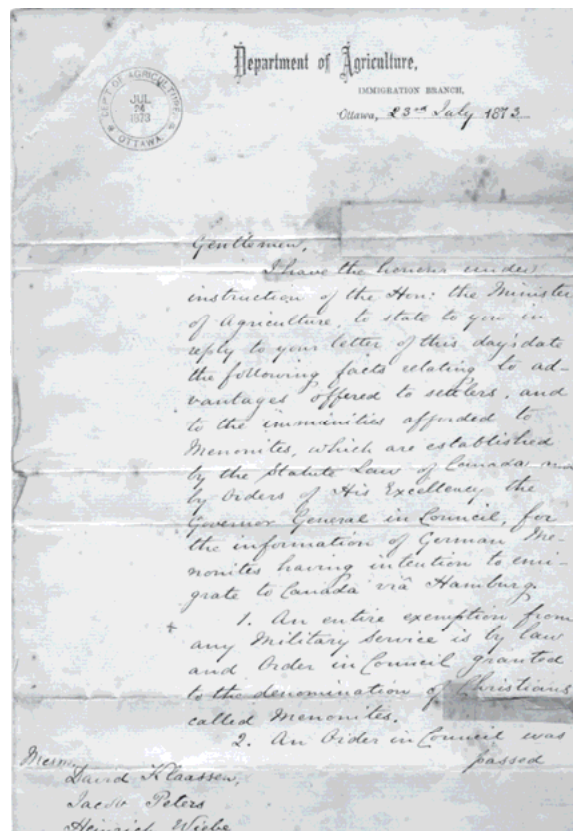 Department of Agriculture,
IMMIGRATION BRANCH,
Ottawa, 23rd July 1873.
DEPT OF AGRICULTURE
JUL
24
1873
OTTAWA
Gentlemen,
I have the honour under
instruction of the Hon: the Minister
of Agriculture to state to you in
reply to your letter of this day's date
the following facts relating to ad-
vantages offered to settlers, and
to the immunities afforded to
Menonites, which are established
by the Statute Law of Canada and
by Orders of His Excellency the
Governor General in Council, for
the information of German Me-
nonites having intention to emi-
grate to Canada viâ Hamburg.
1. An entire exemption from
any Military Service is by law
and Order in Council granted
to the denomination of Christians
called Menonites.
2. An Order in Council was
passed
Messrs.
David Klaassen,
Jacob Peters
Heinrich Wiebe